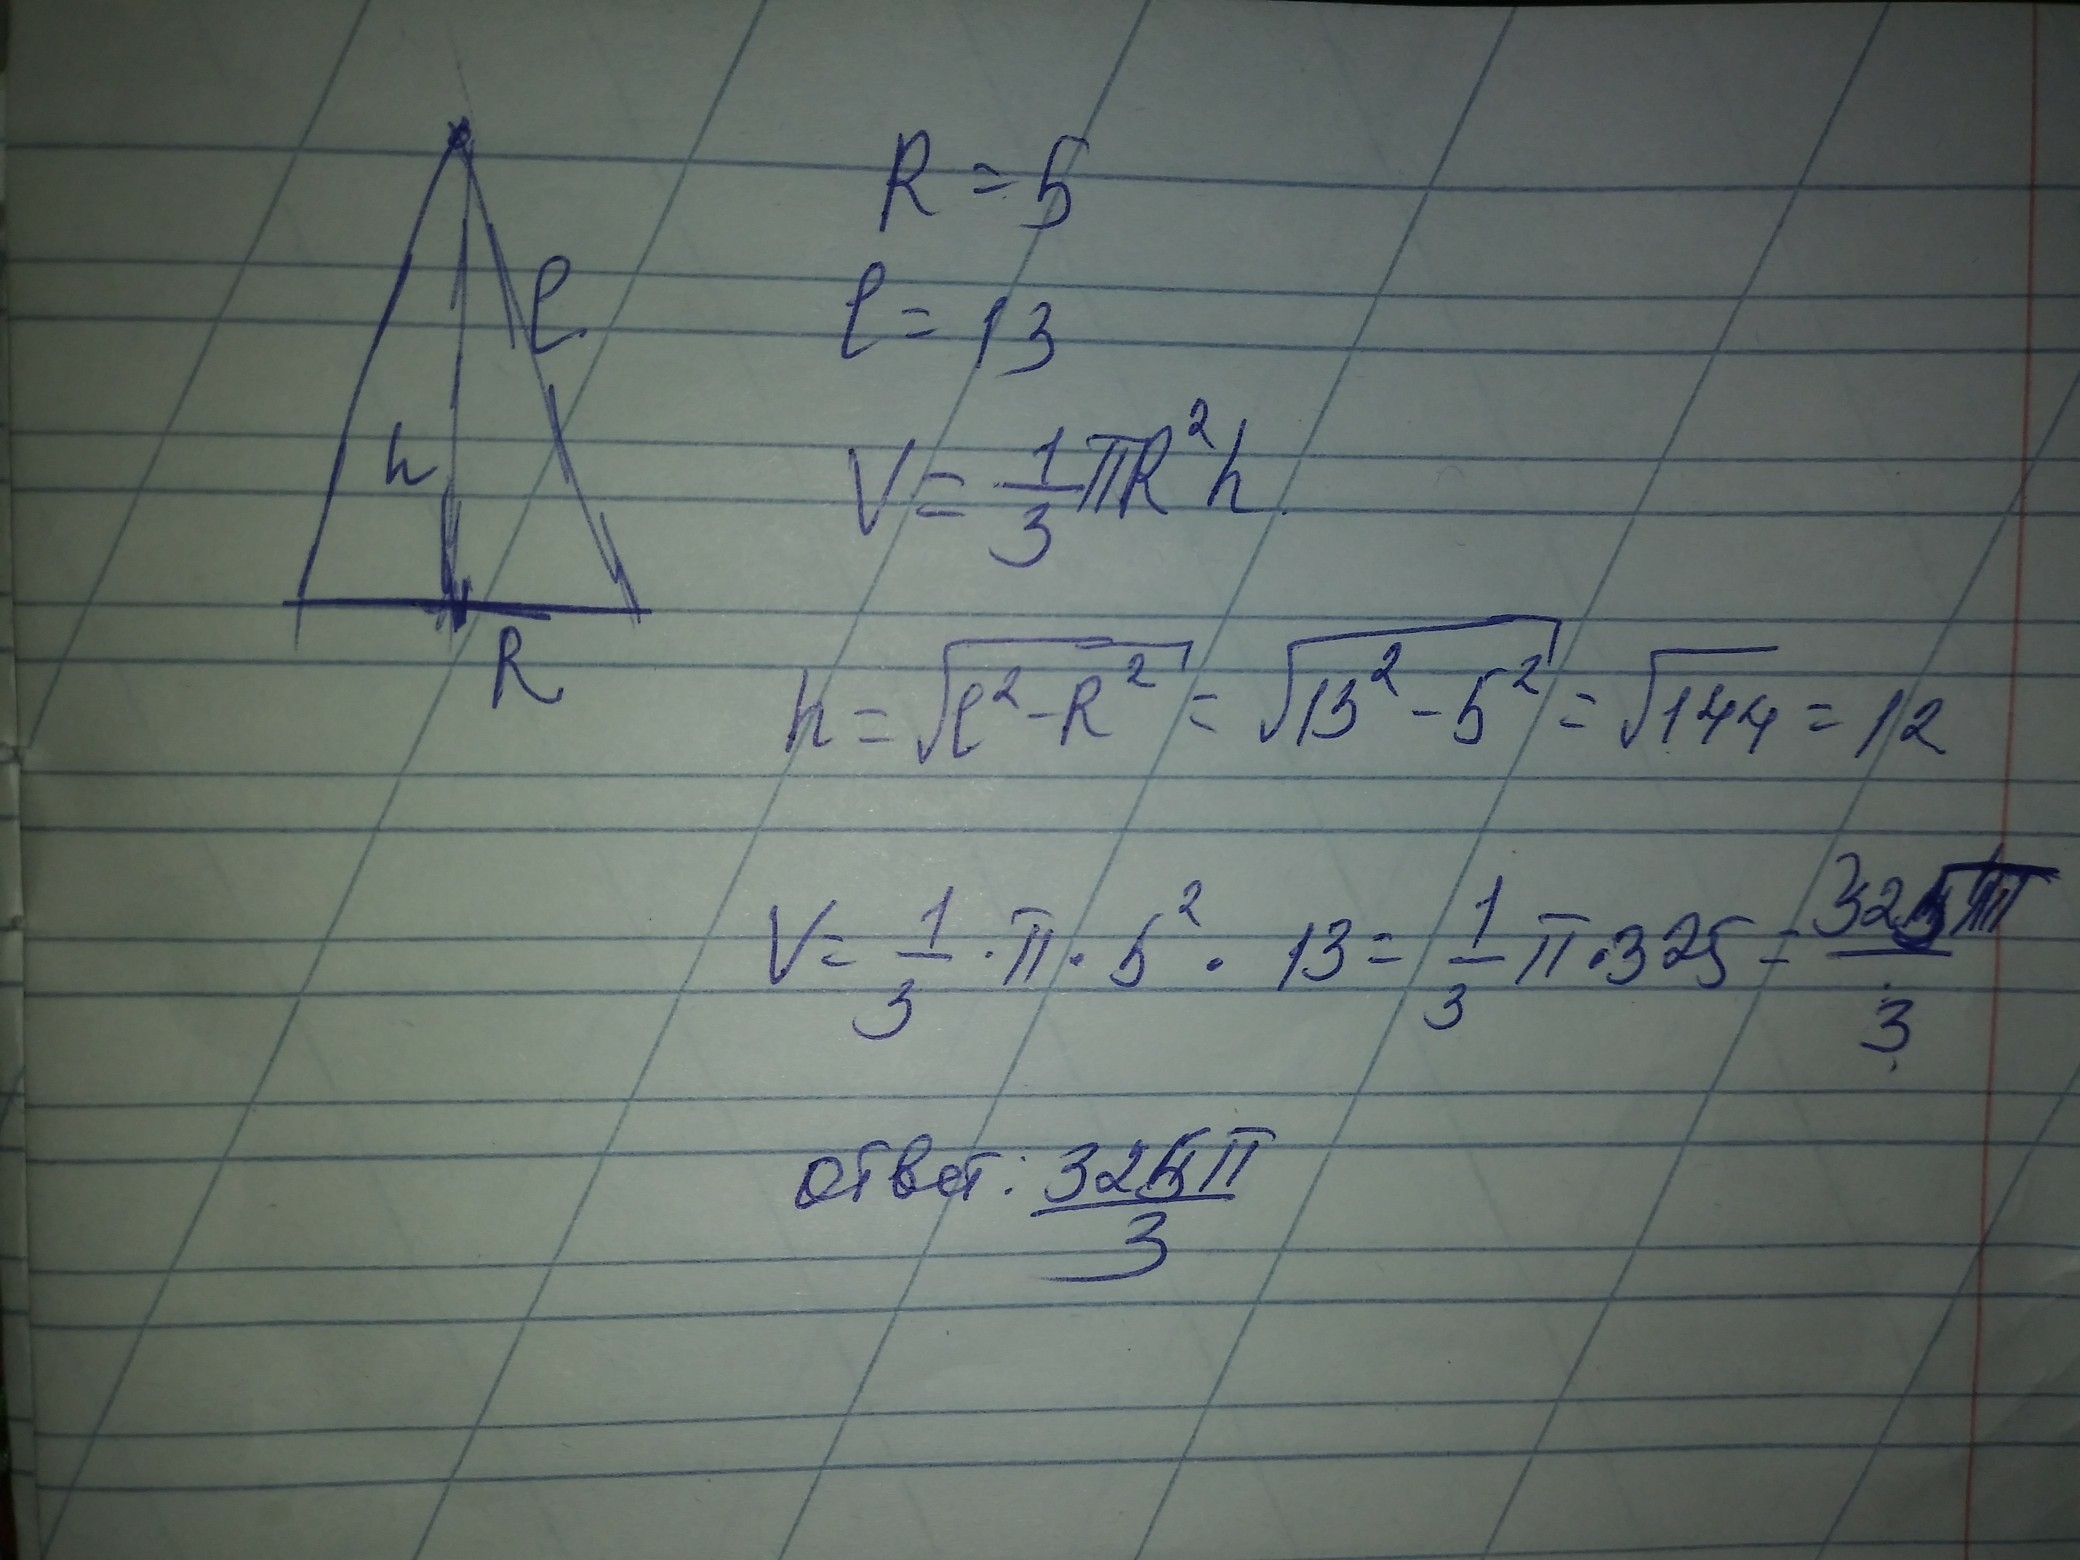 R = 5
l = 13
V = 1/3 πR²h
h = √(l² - R²) = √(13² - 5²) = √144 = 12
V = 1/3 · π · 5² · 13 = 1/3 π · 325 = 325π/3
ответ: 325π/3
l
h
R